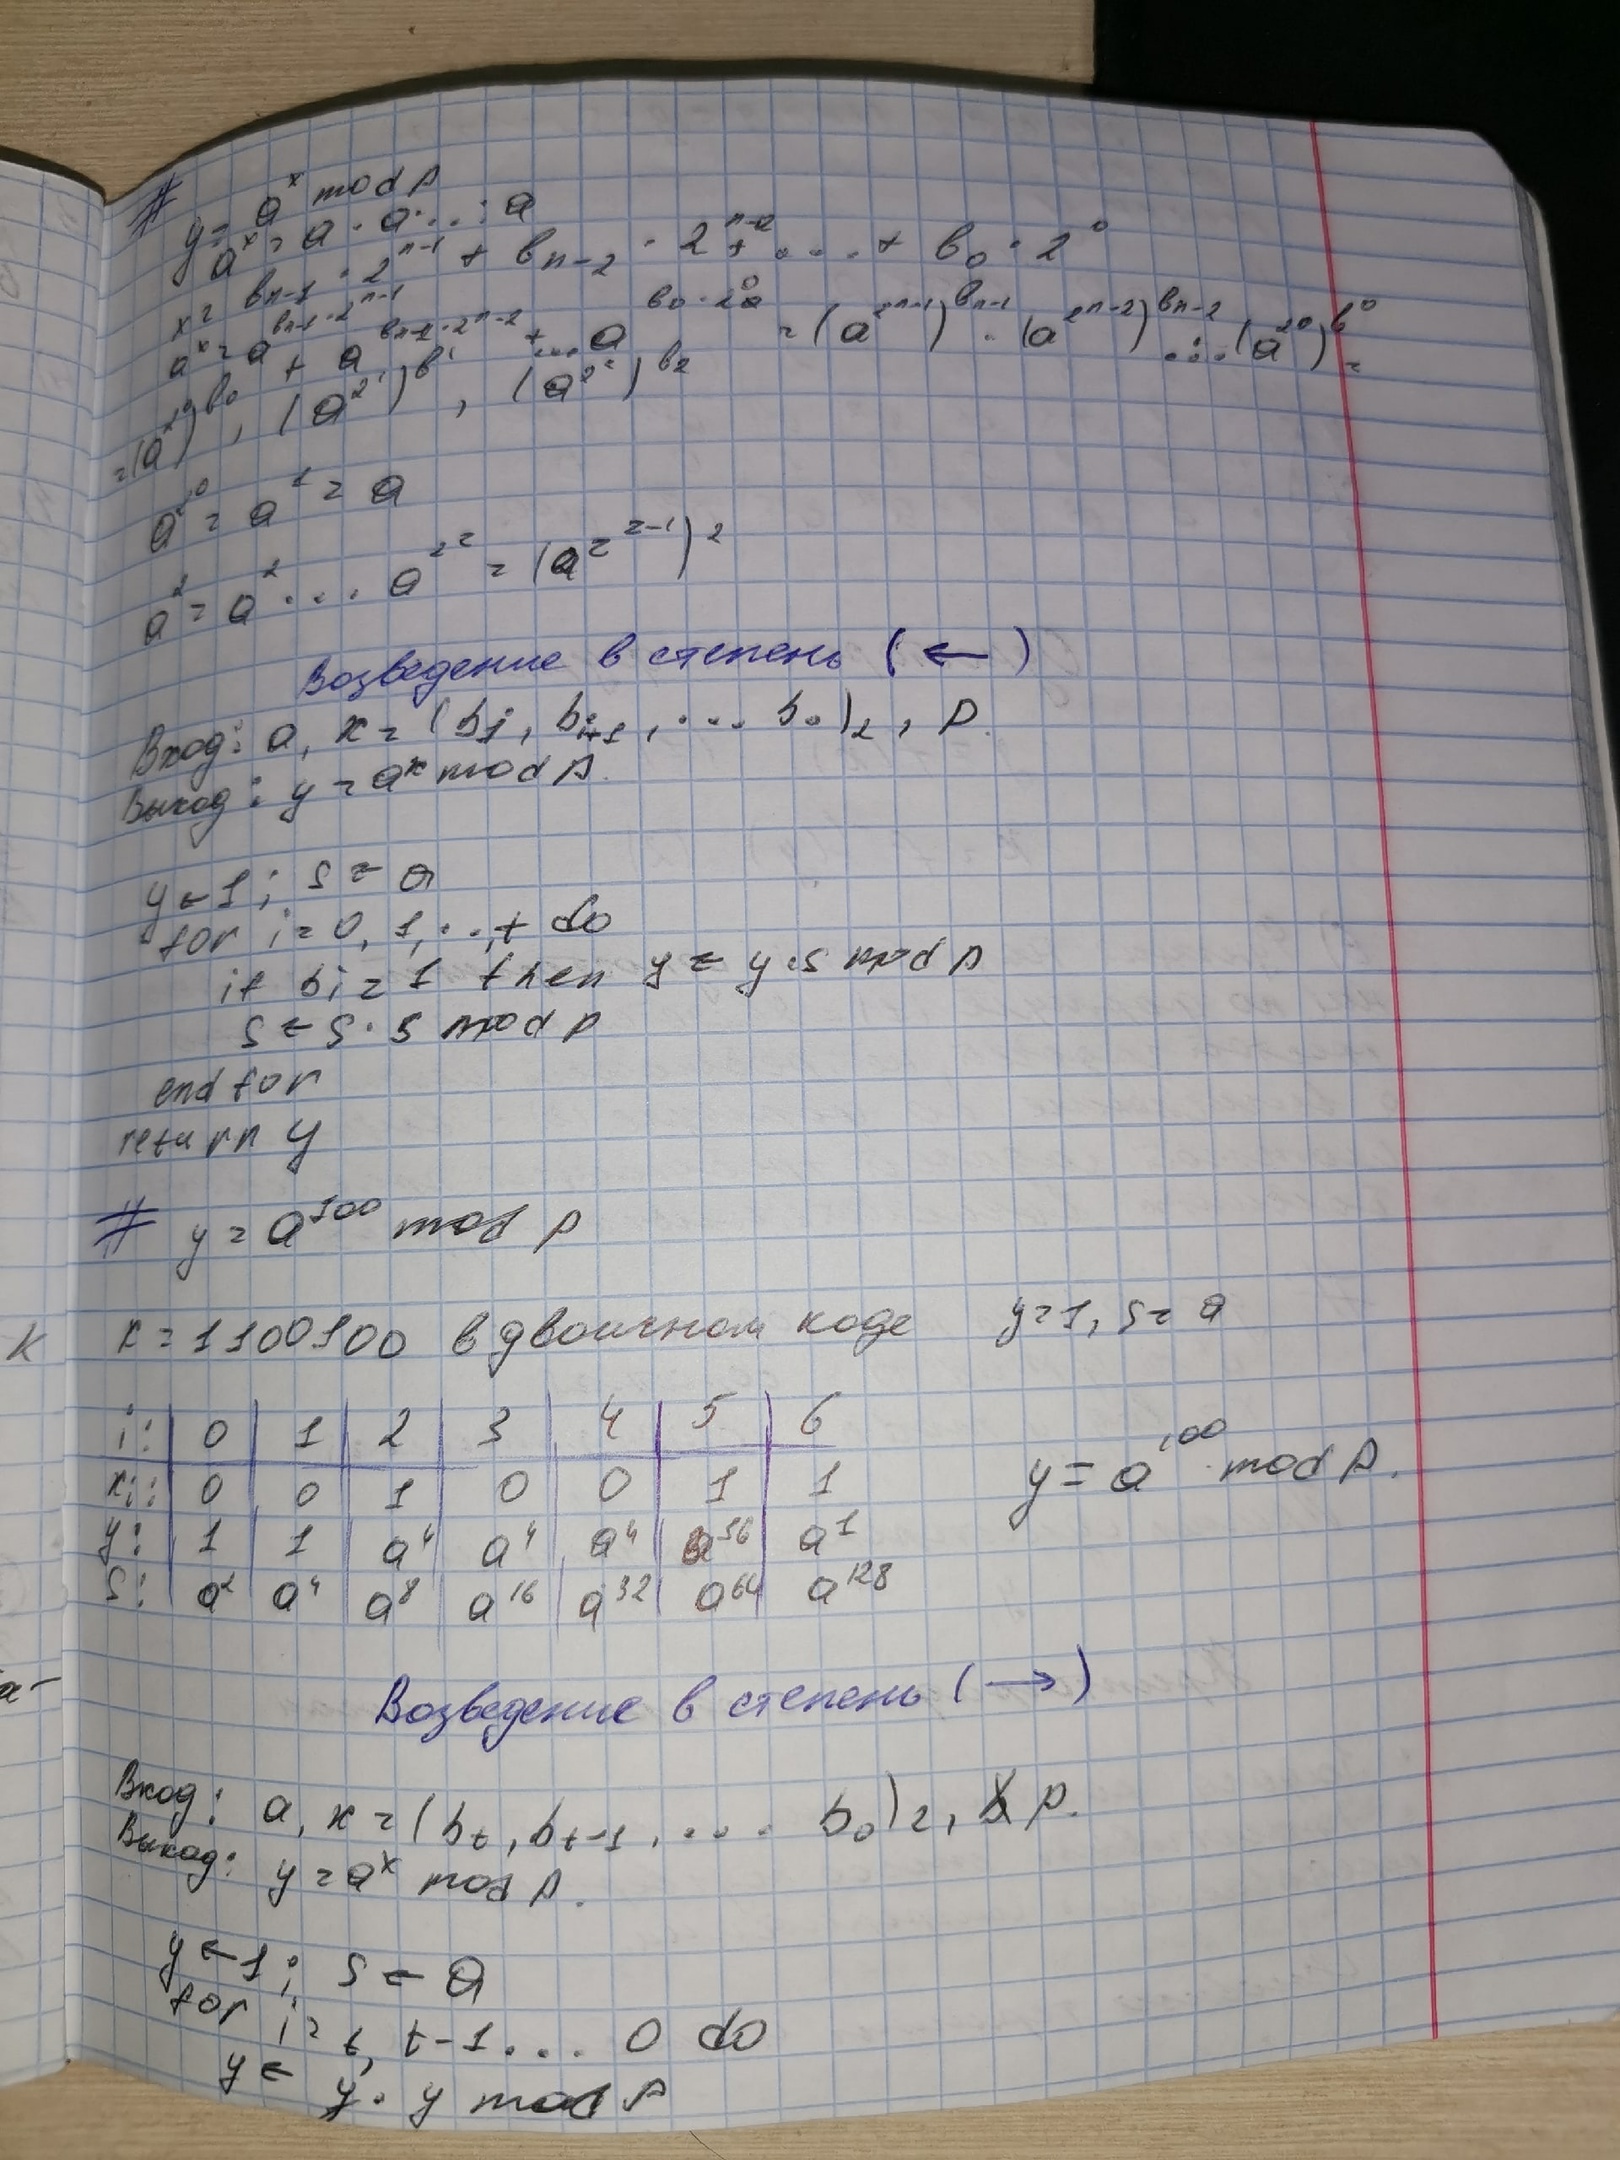 #
y = a^x mod p
a^x = a · a · ... · a
x = b_{n-1} · 2^{n-1} + b_{n-2} · 2^{n-2} + .... + b_0 · 2^0
a^x = a^{b_{n-1}·2^{n-1}} + a^{b_{n-2}·2^{n-2}} + ... a^{b_0·2^0} = (a^{2^{n-1}})^{b_{n-1}} · (a^{2^{n-2}})^{b_{n-2}} ... (a^{2^0})^{b_0} =
= (a^{2^0})^{b_0}, (a^{2^1})^{b_1}, (a^{2^2})^{b_2}
a^{2^0} = a^1 = a
a^2 = a^2 ... a^{2^z} = (a^{2^{z-1}})^2
Возведение в степень (←)
Вход: a, x = (b_j, b_{i+1}, ... b_0)_2, p.
Выход: y = a^x mod p.
y ← 1; s = a
for i = 0, 1, ..., t do
if bi = 1 then y = y · s mod p
s ← s · s mod p
end for
return y
# y = a^100 mod p
x = 1100100 в двоичном коде y = 1, s = a
i: 0 1 2 3 4 5 6
xi: 0 0 1 0 0 1 1
y: 1 1 a^4 a^4 a^4 a^36 a^1
s: a^2 a^4 a^8 a^16 a^32 a^64 a^128
y = a^100 mod p.
Возведение в степень (→)
Вход: a, x = (b_t, b_{t-1}, .... b_0)_2, p.
Выход: y = a^x mod p.
y ← 1; s ← a
for i = t, t-1 ... 0 do
y ← y · y mod p
к